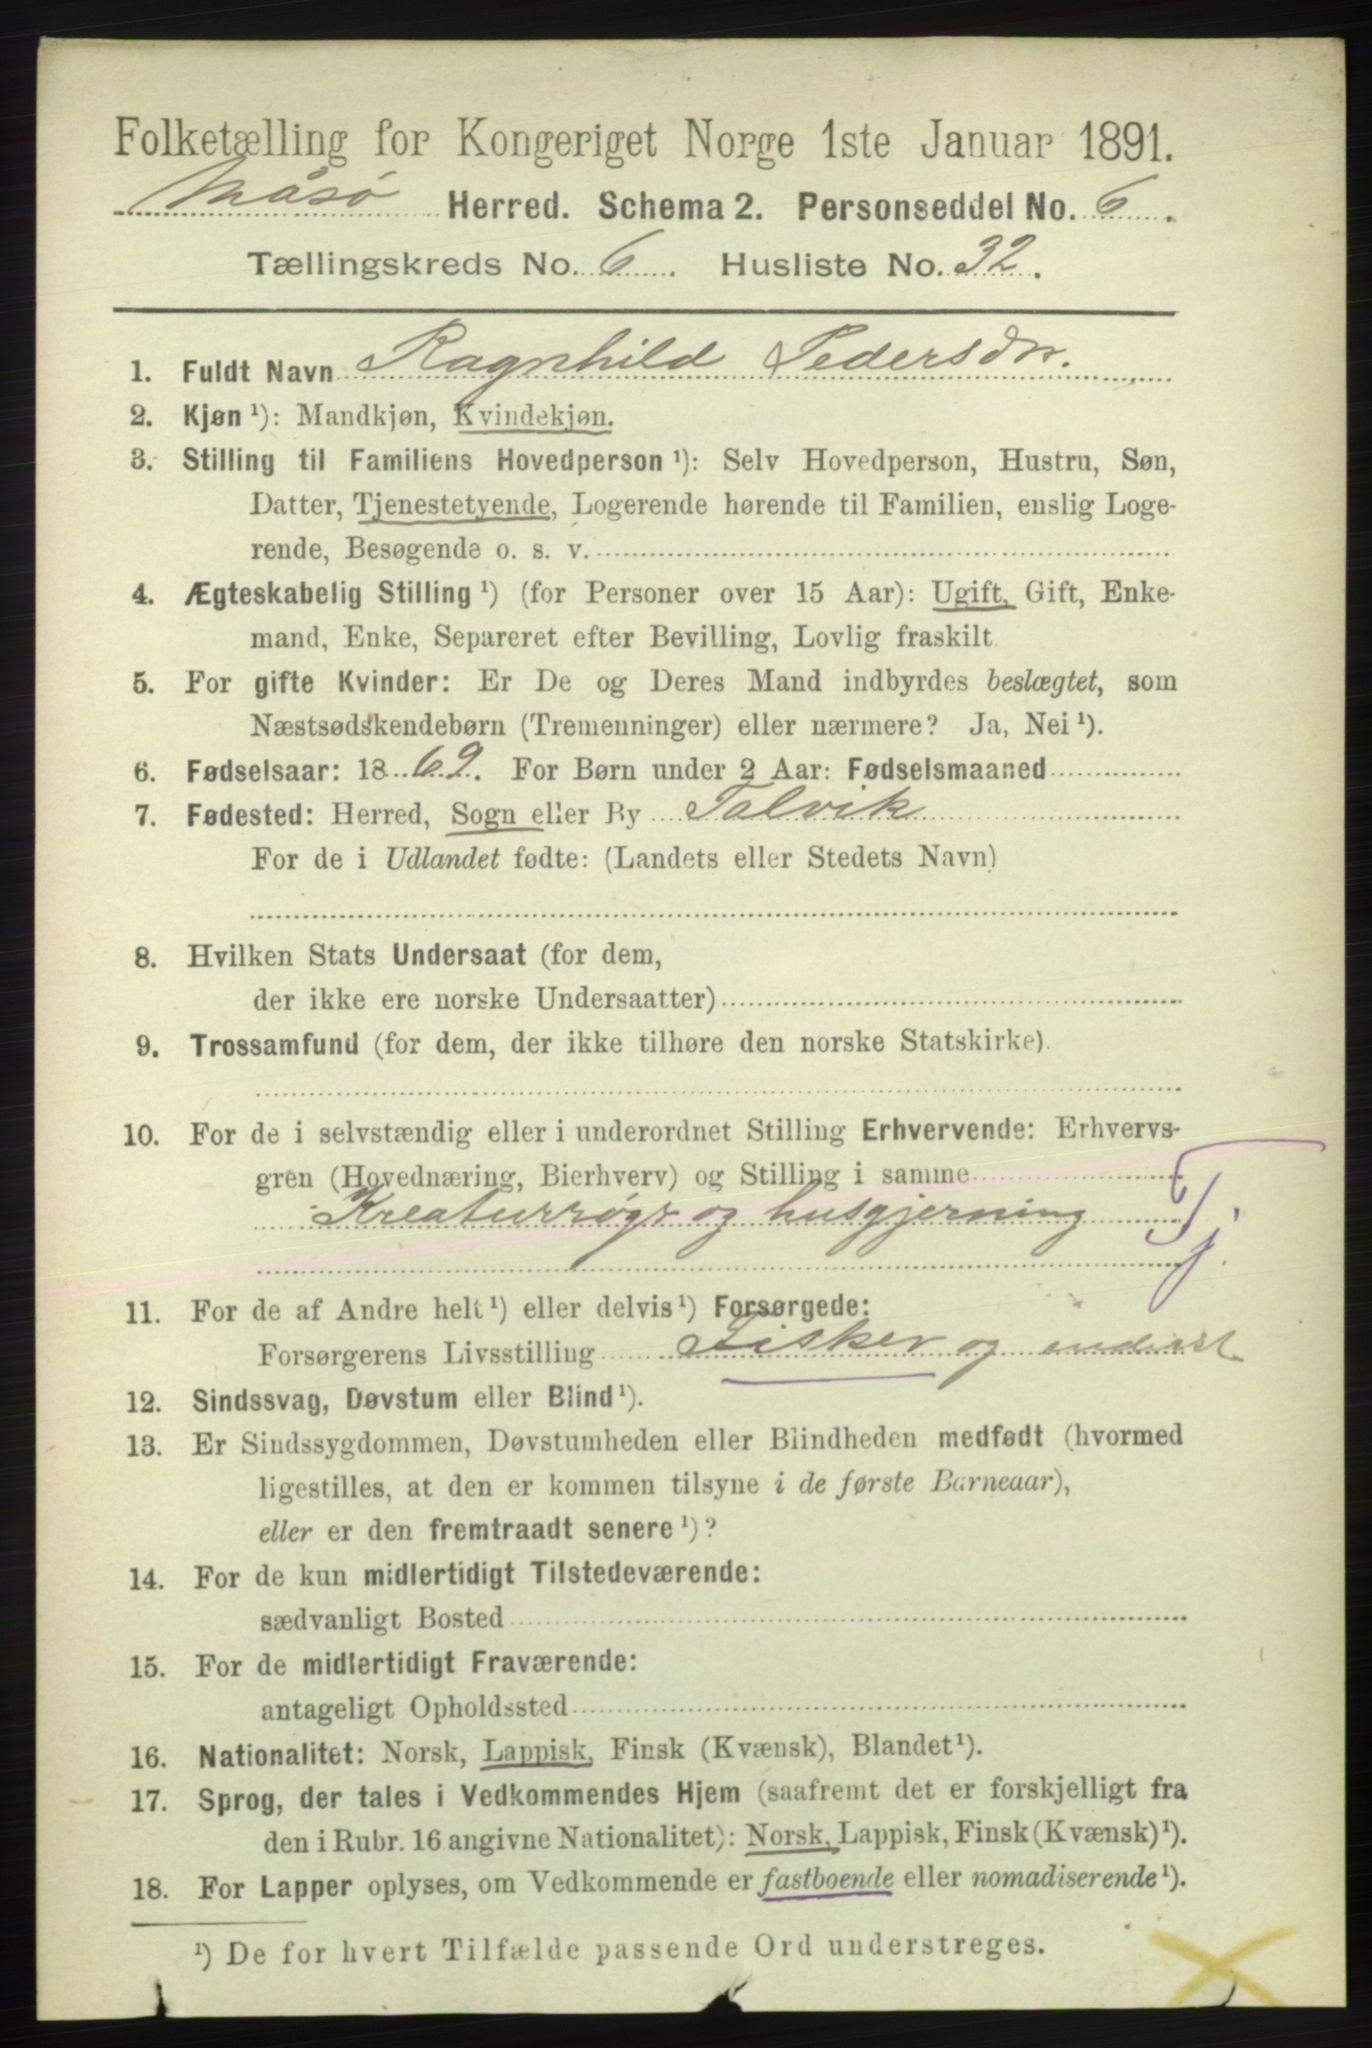 Folketælling for Kongeriget Norge 1ste Januar 1891.
Måsø Herred. Schema 2. Personseddel No. 6.
Tællingskreds No. 6. Husliste No. 32.
1. Fuldt Navn Ragnhild Pedersdtr.
2. Kjøn ¹): Mandkjøn, Kvindekjøn.
3. Stilling til Familiens Hovedperson ¹): Selv Hovedperson, Hustru, Søn,
Datter, Tjenestetyende, Logerende hørende til Familien, enslig Loge-
rende, Besøgende o. s. v.
4. Ægteskabelig Stilling ¹) (for Personer over 15 Aar): Ugift, Gift, Enke-
mand, Enke, Separeret efter Bevilling, Lovlig fraskilt
5. For gifte Kvinder: Er De og Deres Mand indbyrdes beslægtet, som
Næstsødskendebørn (Tremenninger) eller nærmere? Ja, Nei ¹).
6. Fødselsaar: 1869. For Børn under 2 Aar: Fødselsmaaned
7. Fødested: Herred, Sogn eller By Talvik
For de i Udlandet fødte: (Landets eller Stedets Navn)
8. Hvilken Stats Undersaat (for dem,
der ikke ere norske Undersaatter)
9. Trossamfund (for dem, der ikke tilhøre den norske Statskirke).
10. For de i selvstændig eller i underordnet Stilling Erhvervende: Erhvervs-
gren (Hovednæring, Bierhverv) og Stilling i samme
Kreaturrøgt og husgjerning Tj.
11. For de af Andre helt ¹) eller delvis ¹) Forsørgede:
Forsørgerens Livsstilling Fisker og
12. Sindssvag, Døvstum eller Blind ¹).
13. Er Sindssygdommen, Døvstumheden eller Blindheden medfødt (hvormed
ligestilles, at den er kommen tilsyne i de første Barneaar),
eller er den fremtraadt senere ¹)?
14. For de kun midlertidigt Tilstedeværende:
sædvanligt Bosted
15. For de midlertidigt Fraværende:
antageligt Opholdssted
16. Nationalitet: Norsk, Lappisk, Finsk (Kvænsk), Blandet ¹).
17. Sprog, der tales i Vedkommendes Hjem (saafremt det er forskjelligt fra
den i Rubr. 16 angivne Nationalitet): Norsk, Lappisk, Finsk (Kvænsk) ¹).
18. For Lapper oplyses, om Vedkommende er fastboende eller nomadiserende ¹).
¹) De for hvert Tilfælde passende Ord understreges.